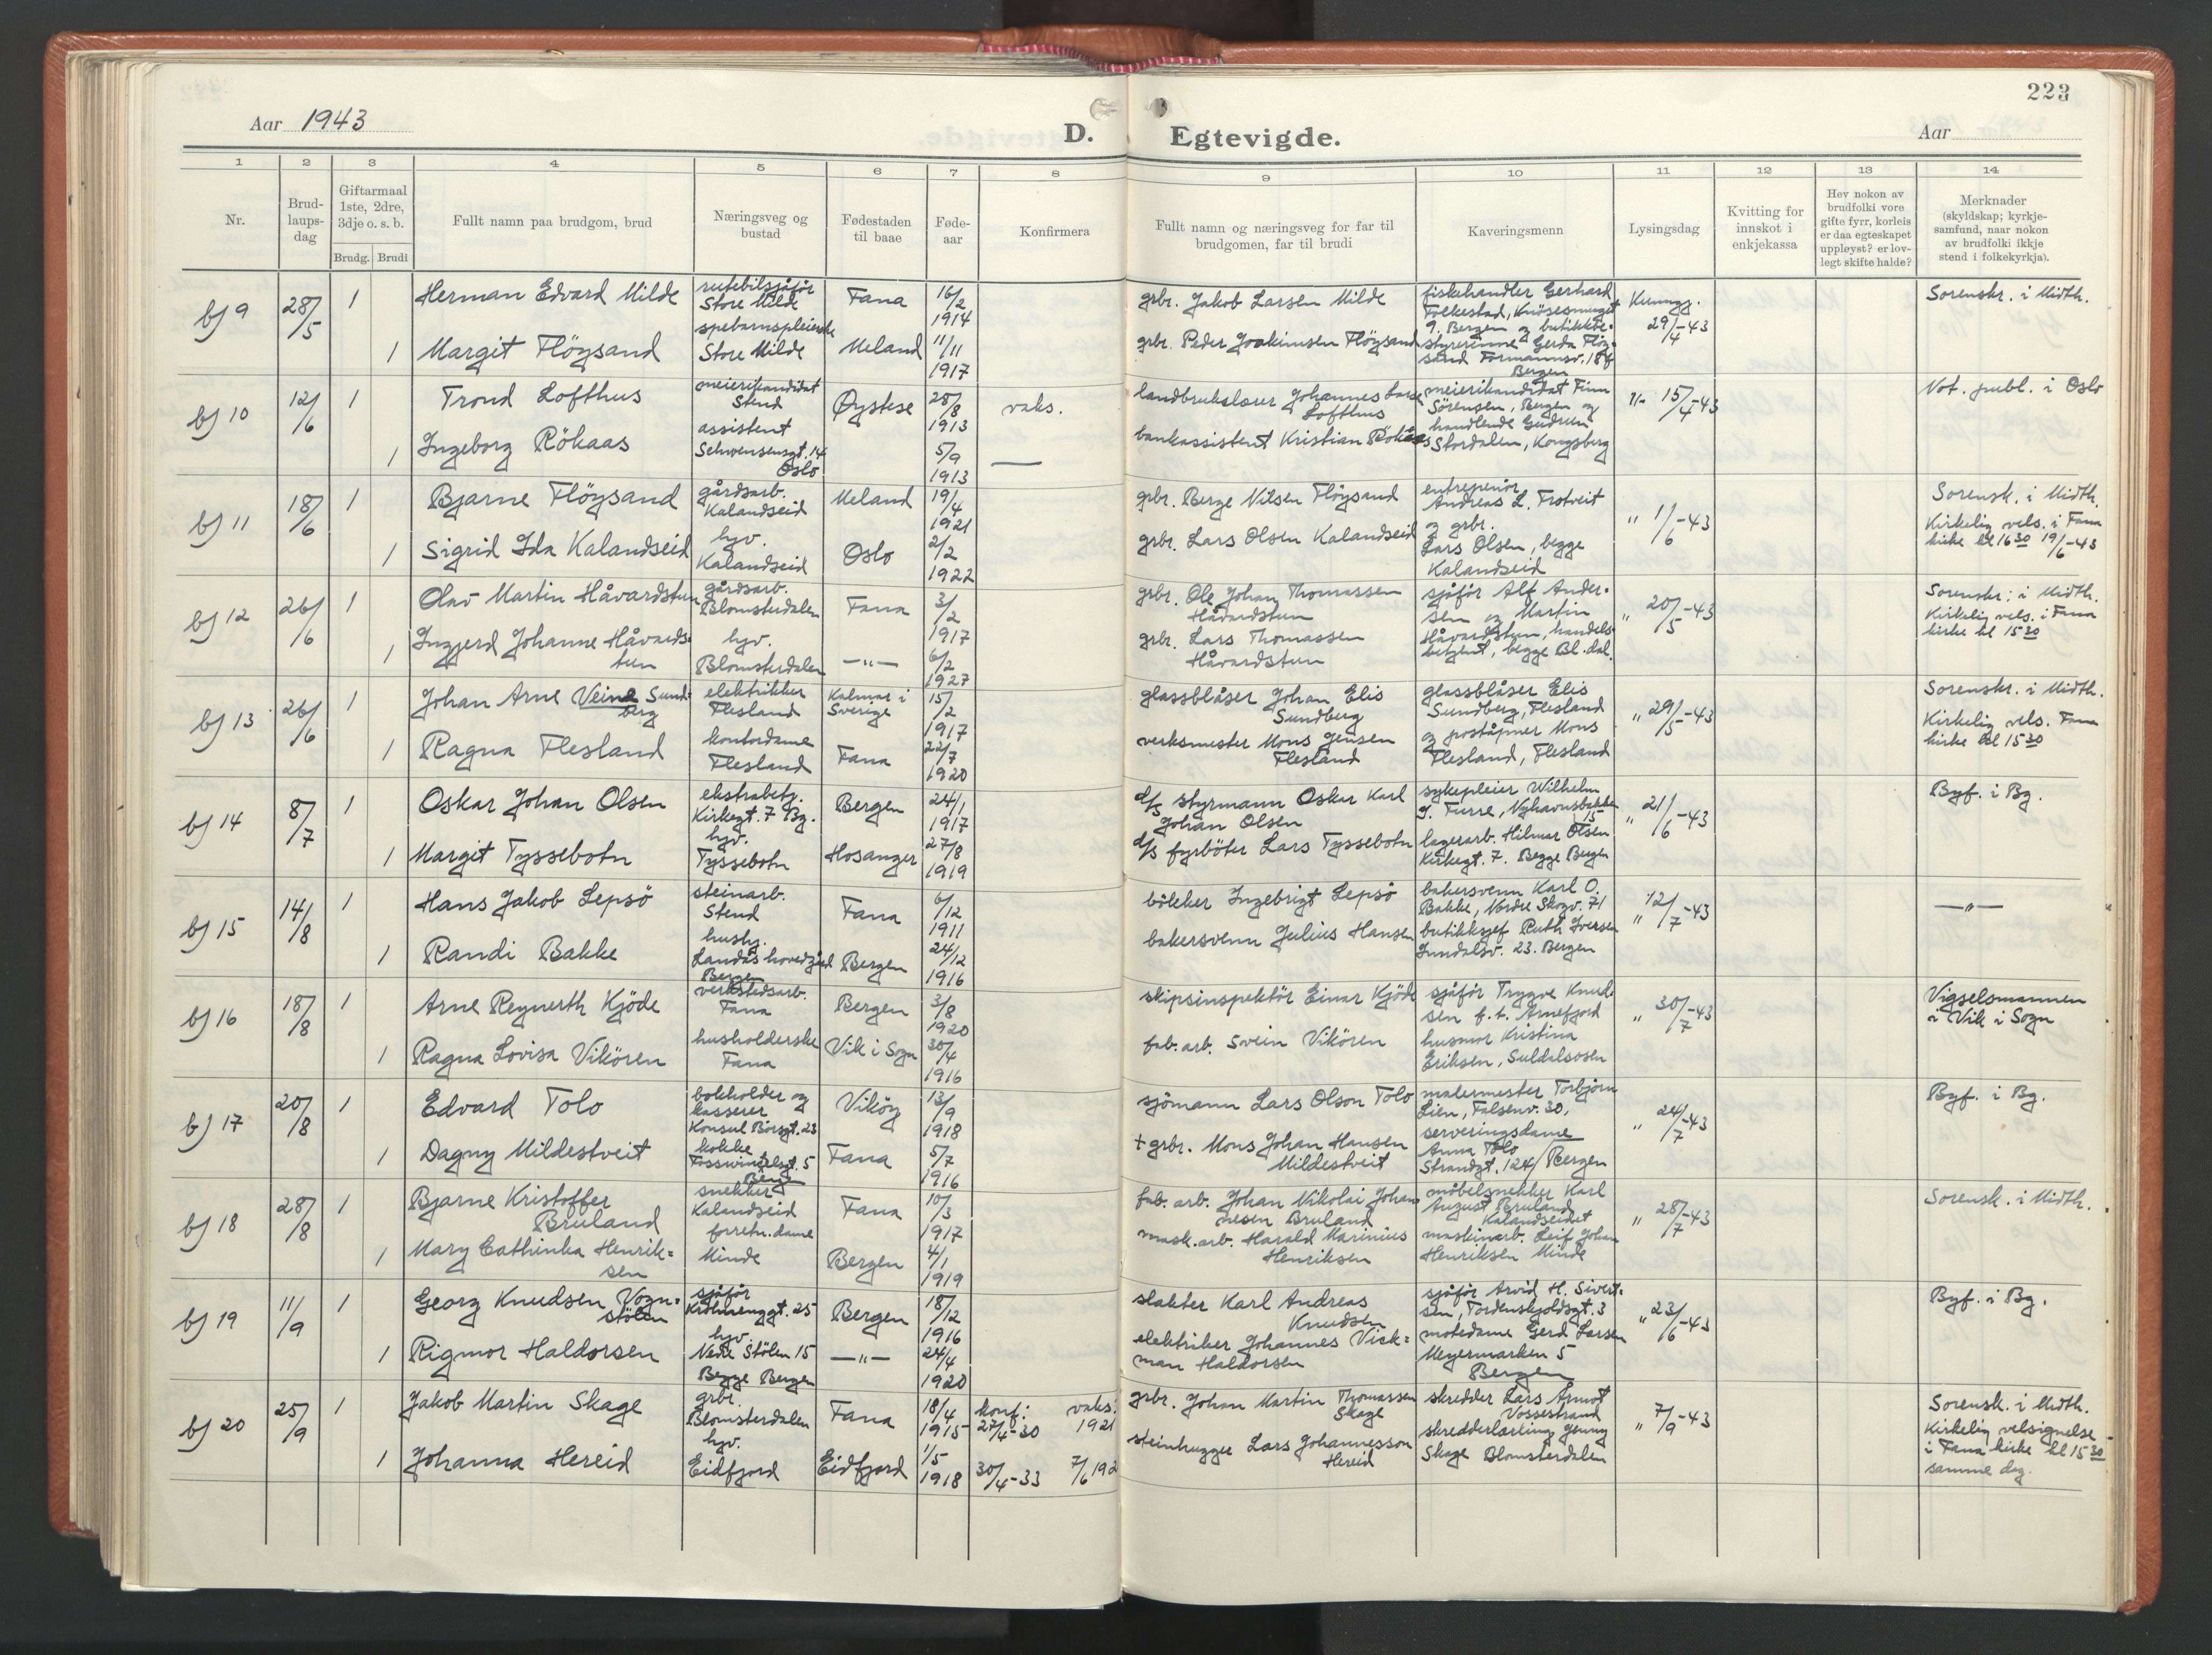 223
Aar 1943
D. Egtevigde.
Aar
1 2 3 4 5 6 7 8 9 10 11 12 13 14
Nr.
Brud-
laups-
dag
Giftarmaal
1ste, 2dre,
3dje o. s. b.
Brudg. Brudi
Fullt namn paa brudgom, brud
Næringsveg og
bustad
Fødestaden
til baae
Føde-
aar
Konfirmera
Fullt namn og næringsveg for far til
brudgomen, far til brudi
Kaveringsmenn
Lysingsdag
Kvitting for
innskot i
enkjekassa
Hev nokon av
brudfolki vore
gifte fyrr, korleis
er daa egteskapet
uppløyst? er lov-
legt skifte halde?
Merknader
(skyldskap; kyrkje-
samfund, naar nokon
av brudfolki ikkje
stend i folkekyrkja).
b) 9
28/5
1
Herman Edvard Milde
rutebilsjåfór
Store Milde
Fana
16/2
1914
grbr. Jakob Larsen Milde
fiskehandler Gerhard
Folkestad, Knösesmuget
9. Bergen og butikkbe-
styrerinne Gerda Flöy-
sand Formannsv. 18 f
Bergen
Kunngj.
29/4-43
Sorenskr. i Midth.
1
Margit Flöysand
spebarnspleierske
Store Milde
Meland
11/11
1917
grbr. Peder Joakimsen Flöysand
b) 10
12/6
1
Trond Lofthus
meierikandidat
Stend
Øystese
28/8
1913
vaks.
landbrukslærer Johannes Larse
Lofthus
meierikandidat Finn
Sörensen, Bergen og
handlende Gudrun
Stordalen, Kongsberg
"- 15/4-43
Not. publ. i Oslo
1
Ingeborg Rökaas
assistent
Schwensensgt. 14
Oslo
5/9
1913
—
bankassistent Kristian Rökaas
b) 11
18/6
1
Bjarne Flöysand
gårdsarb.
Kalandseid
Meland
19/4
1921
grbr. Berge Nilsen Flöysand
entreprenör
Andreas L. Trotveit
og grbr.
Lars Olsen, begge
Kalandseid
" 1/6-43
Sorensk. i Midth.
Kirkelig vels. i Fana
kirke kl 16 30 19/6-43
1
Sigrid Ida Kalandseid
hgv.
Kalandseid
Oslo
2/2
1922
grbr. Lars Olsen Kalandseid
b) 12
26/6
1
Olav Martin Håvardstun
gårdsarb.
Blomsterdalen
Fana
3/2
1917
grbr. Ole Johan Thomassen
Håvardstun
sjåför Alf Ander-
sen og Martin
Håvardstun, handels-
betjent, begge Bl.dal.
" 20/5-43
Sorenskr. i Midth.
Kirkelig vels. i Fana
kirke kl 15 30
1
Ingjerd Johanne Håvards-
tun
hgv.
Blomsterdalen
—"—
6/2
1927
grbr. Lars Thomassen
Håvardstun
b) 13
26/6
1
Johan Arne Veine Sund-
berg
elektrikker
Flesland
Kalmar i
Sverige
15/2
1917
glassblåser Johan Elis
Sundberg
glassblåser Elis
Sundberg, Flesland
og poståpner Mons
Flesland, Flesland
" 29/5-43
Sorenskr. i Midth.
Kirkelig vels. Fana
kirke kl 15 30
1
Ragna Flesland
kontordame
Flesland
Fana
22/7
1920
verksmester Mons Jensen
Flesland
b) 14
8/7
1
Oskar Johan Olsen
ekstrabetj.
Kirkegt. 7 Bg.
Bergen
24/1
1917
d/s styrmann Oskar Karl
Johan Olsen
sykepleier Wilhelm
J. Furre, Nyhavnsbakken
15
lagerarb. Hilmar Olsen
Kirkegt. 7. Begge Bergen
" 21/6-43
Byf. i Bg.
1
Margit Tyssebotn
hgv.
Tyssebotn
Hosanger
27/8
1919
d/s fyrböter Lars Tyssebotn
b) 15
14/8
1
Hans Jakob Lepsö
steinarb.
Stend
Fana
6/12
1911
böleker Ingebrigt Lepsö
bakersvenn Karl O.
Bakke, Nordre Skogv. 71
butikksjef Ruth Iversen
Jundalsv. 23. Bergen
" 12/7-43
—"—
1
Randi Bakke
husbg.
Landås hovedgård
Bergen
Bergen
24/12
1916
bakersvenn Julius Hansen
b) 16
18/8
1
Arne Reynerth Kjöde
verkstedsarb.
Fana
Bergen
3/8
1920
skipsinspektör Einar Kjöde
sjåför Trygve Knud-
sen f.t. Arnefjord
husmor Kristina
Eriksen, Suldalsosen
" 30/7-43
Vigselsmannen
i Vik i Sogn
1
Ragna Lovisa Vikören
husholderske
Fana
Vik i Sogn
30/4
1916
fab.arb. Svein Vikören
b) 17
20/8
1
Edvard Tolo
bokholder og
kasserer
Konsul Börsgt. 23
Viköy
13/9
1918
sjömann Lars Olson Tolo
malermester Torbjörn
Lien, Falsenv. 30,
serveringsdame
Anna Tolo
Strandgt. 124/ Bergen
" 24/7-43
Byf. i Bg.
1
Dagny Mildestveit
kokke
Fosswinckelsgt. 5
Berg
Fana
5/7
1916
+ grbr. Mons Johan Hansen
Mildestveit
b) 18
28/8
1
Bjarne Kristoffer
Bruland
snekker
Kalandseid
Fana
10/3
1917
fab. arb. Johan Nikolai Johan
nesen Bruland
möbelsnekker Karl
August Bruland
Kalandseidet
maskinarb. Leif Johan
Henriksen Minde
" 28/7-43
Sorensk. i Midth.
1
Mary Cathinka Henrik-
sen
forretn.dame
Minde
Bergen
4/1
1919
mask.arb. Harald Marinius
Henriksen
b) 19
11/9
1
Georg Knudsen Vogn-
stölen
sjåför
Krohnenggt. 25
Bergen
18/12
1916
slakter Karl Andreas
Knudsen
sjåför Arvid H. Sivert-
sen, Tordenskjoldsgt. 3
motedame Gerd Larsen
Meyermarken 5
Bergen
" 23/6-43
Byf. i Bg.
1
Rigmor Haldorsen
hgv.
Nedre Stölen 15
Begge Bergen
—"—
24/4
1920
elektriker Johannes Vick-
man Haldorsen
b) 20
25/9
1
Jakob Martin Skage
grbr.
Blomsterdalen
Fana
18/4
1915
konf: vaks.
27/4-30 1921
grbr. Johan Martin Thomassen
Skage
skredder Lars Arnot
Vossestrand
skredderlærling Jenny
Skage Blomsterdalen
" 7/9-43
Sorensk. i Midth.
Kirkelig velsignelse
i Fana kirke kl 15 30
samme dag.
1
Johanna Hereid
hgv.
Eidfjord
Eidfjord
1/5
1918
30/4-33 7/6 192
steinhugger Lars Johannesson
Hereid